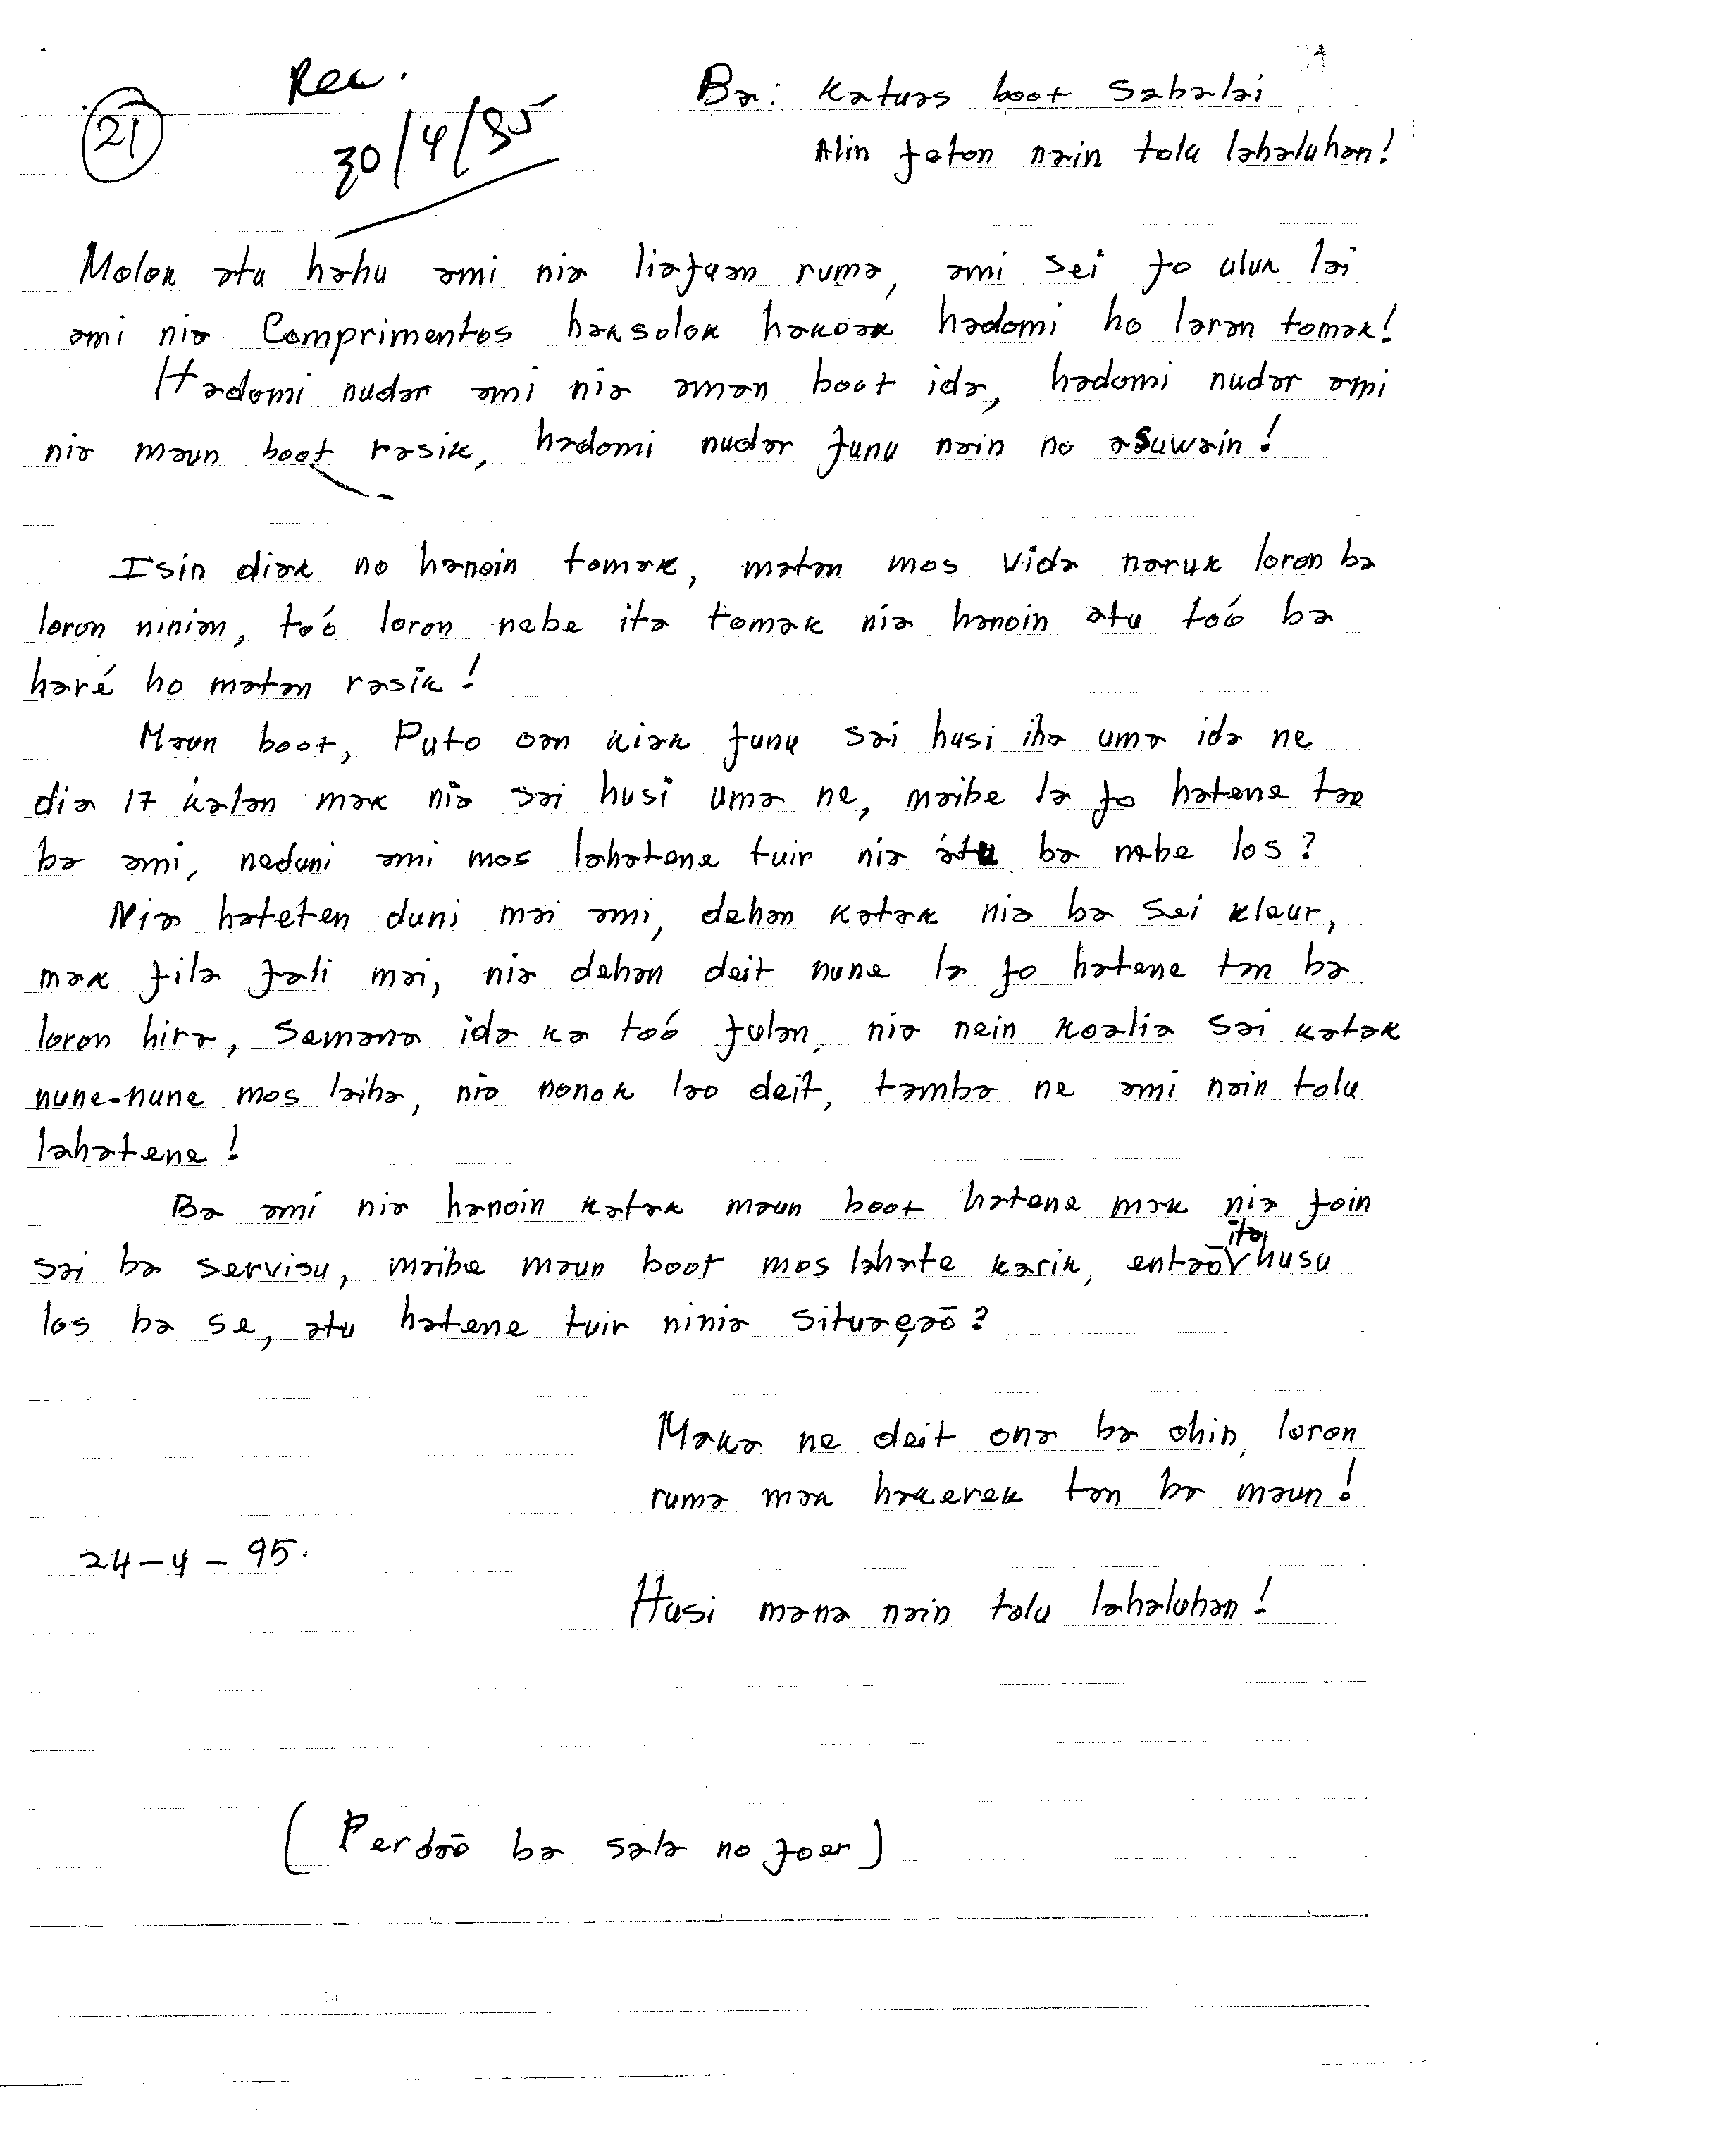 21
Rec.
30/4/95
Ba: Katuas boot Sabalai
Alin feton nain tolu lahaluhan!
Molok atu hahu ami nia liafuan ruma, ami sei fo uluk lai
ami nia Comprimentos haksolok hakoak hadomi ho laran tomak!
Hadomi nudar ami nia aman boot ida, hadomi nudar ami
nia maun boot rasik, hadomi nudar funu nain no asuwain!
Isin diak no hanoin tomak, matan mos vida naruk loron ba
loron ninian, toó loron nebe ita tomak nia hanoin atu toó ba
haré ho matan rasik!
Maun boot, Puto oan kiak funu sai husi iha uma ida ne
dia 17 kalan mak nia sai husi uma ne, maibe la fo hatene tan
ba ami, neduni ami mos lahatene tuir nia atu ba nebe los?
Nia hateten duni mai ami, dehan katak nia ba sei kleur,
mak fila fali mai, nia dehan deit nune la fo hatene tan ba
loron hira, Semana ida ka toó fulan, nia nein koalia sai katak
nune-nune mos laiha, nia nonok lao deit, tamba ne ami nain tolu
lahatene!
Ba ami nia hanoin katak maun boot hatene mak nia foin
sai ba servisu, maibe maun boot mos lahate karik, entaõ ita husu
los ba se, atu hatene tuir ninia situaçaõ?
Maka ne deit ona ba ohin, loron
ruma mak hakerek tan ba maun!
24-4-95.
Husi mana nain tolu lahaluhan!
(Perdaõ ba sala no foer)